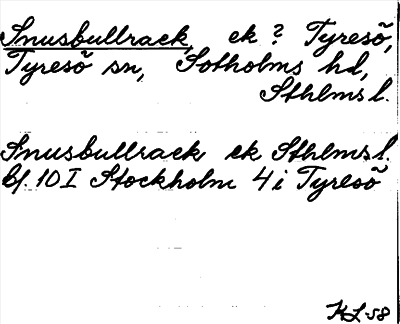 Snusbullrack, ek ? Tyresö,
Tyresö sn, Sotholms hd,
Sthlms l.
Snusbullrack ek Sthlms l.
bl. 10 I Stockholm 4 i Tyresö
KL 58